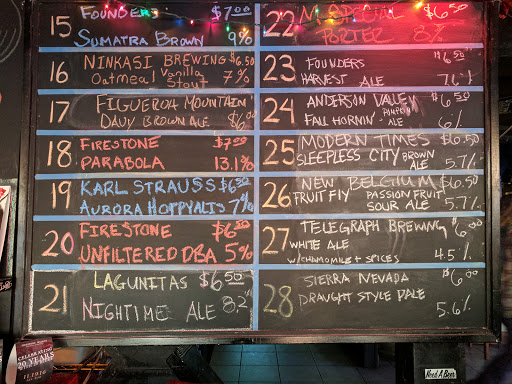 15 FOUNDERS $7.00
SUMATRA BROWN 9%
16 NINKASI BREWING $6.50
Oatmeal Vanilla Stout 7%
17 FIGUEROA MOUNTAIN
DAVY BROWN ALE $6.00
18 FIRESTONE $7.00
PARABOLA 13.1%
19 KARL STRAUSS $6.50
AURORA HOPPYALIS 7%
20 FIRESTONE $6.00
UNFILTERED DBA 5%
21 LAGUNITAS $6.50
NIGHTIME ALE 8.2%
22 SPECIAL $6.50
PORTER 8%
23 FOUNDERS $6.50
HARVEST ALE 7.6%
24 ANDERSON VALLEY $6.50
FALL HORNIN' PUMPKIN ALE 6%
25 MODERN TIMES $6.50
SLEEPLESS CITY BROWN ALE 5.7%
26 NEW BELGIUM $6.50
FRUIT FLY PASSION FRUIT
SOUR ALE 5.7%
27 TELEGRAPH BREWING $6.00
WHITE ALE
W/CHAMOMILE + SPICES 4.5%
28 SIERRA NEVADA $6.00
DRAUGHT STYLE PALE
5.6%
CELEBRATING
20 YEARS
Need A Beer